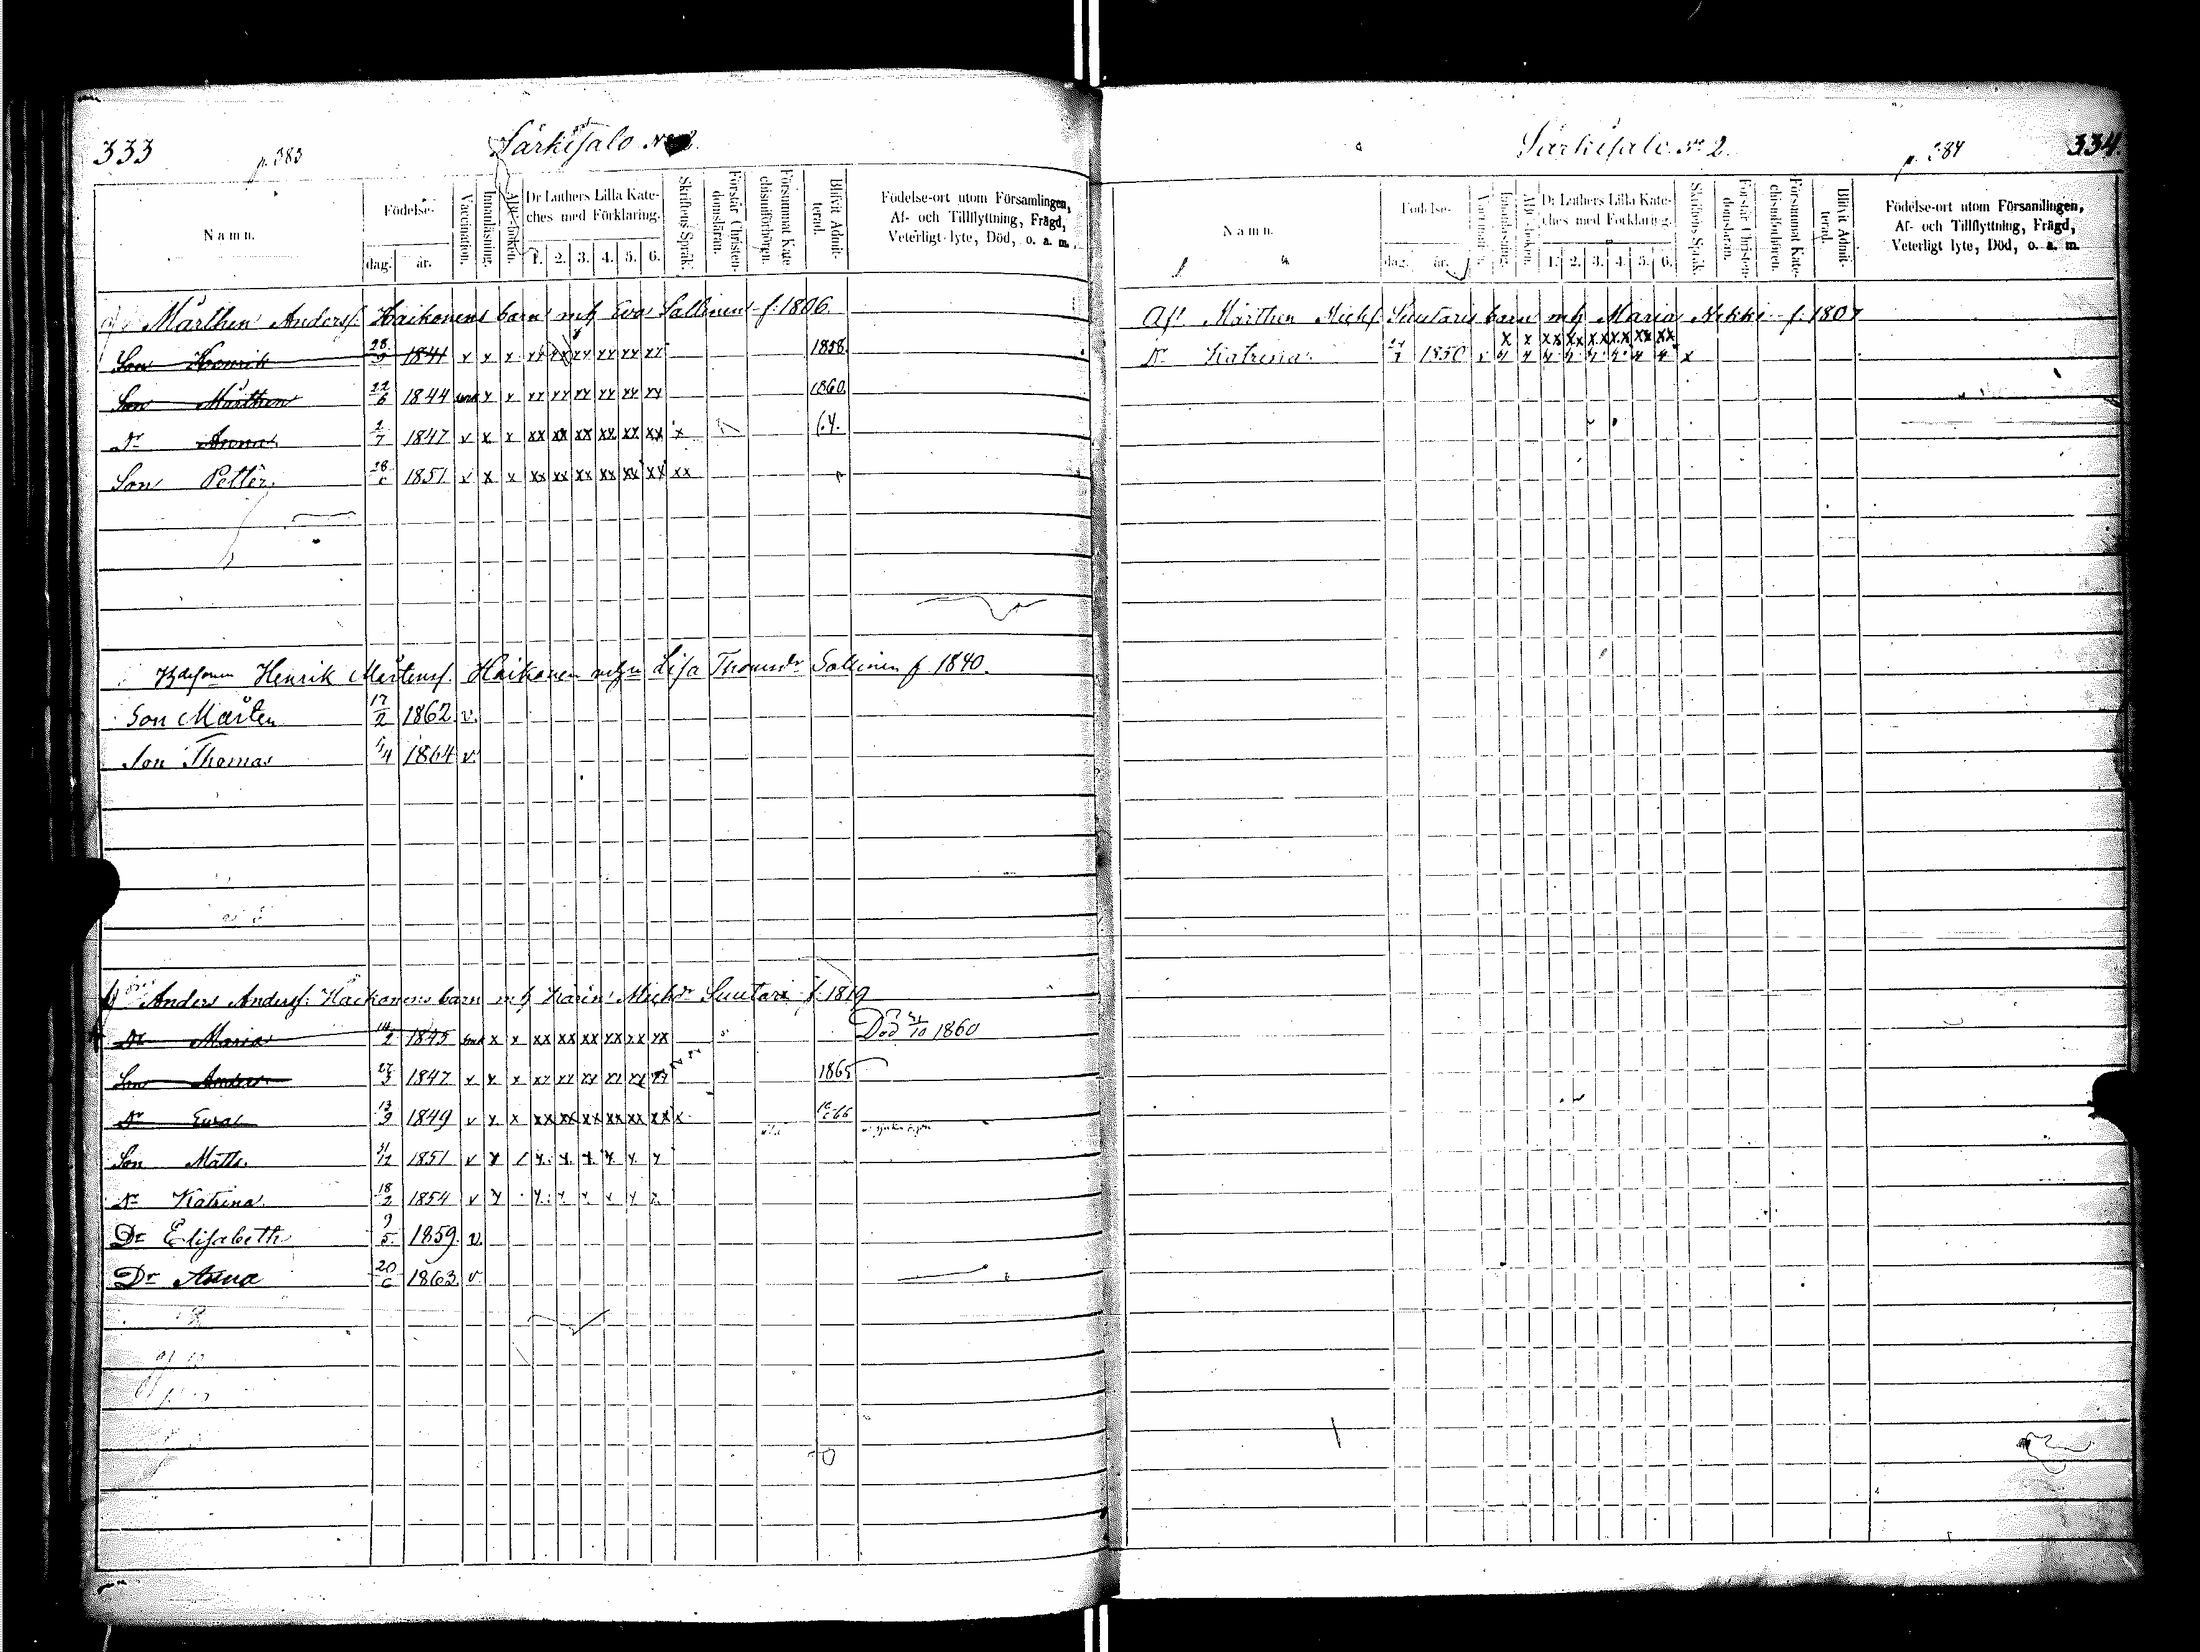 333
p. 383
Särkisalo No 2.
Namn.
Födelse-
dag.
år.
Vaccination.
Innanläsning.
ABC-boken.
Dr Luthers Lilla Kate-
ches med Förklaring.
1. 2. 3. 4. 5. 6.
Skriftens Språk.
Förstår Christen-
domsläran.
Försummat Kate-
chismiförhören.
Blifvit Admit-
terad.
Födelse-ort utom Församlingen,
Af- och Tillflyttning, Frägd,
Veterligt lyte, Död, o. a. m.
Mårthen Andersf. Haikonens barn mh Eva Sallinen f. 1806.
Son Henrik 28/9 1841 v x x xx xx xx xx xx xx 1858
Son Mårthen 22/6 1844 x x xx xx xx xx xx xx 1860
Dr Anna 2/7 1847 v x x xx xx xx xx xx xx x 64.
Son Petter 28/6 1851 v x x xx xx xx xx xx xx xx
Henrik Mårtensf. Haikonen Lisa Thomsdr Sallinen f 1840.
Son Mårten 17/2 1862 v.
Son Thomas 5/4 1864 v.
Anders Andersf. Haikonens barn mh Karin Michdr Suutari f. 1819
Dr Maria 14/2 1845 x x xx xx xx xx xx xx Död 31/10 1860
Son Anders 27/3 1847 v x x xx xx xx xx xx xx 1865
Dr Eva 13/9 1849 v x x xx xx xx xx xx xx x 66
Son Matts 31/12 1851 v x x x x x x x
Dr Katrina 18/2 1854 v x x x x x x x
Dr Elisabeth 9/5 1859 v.
Dr Anna 20/6 1863 v
334.
p. 384
Särkisalo No 2.
Namn.
Födelse-
dag.
år.
Vaccination.
Innanläsning.
ABC-boken.
Dr Luthers Lilla Kate-
ches med Förklaring.
1. 2. 3. 4. 5. 6.
Skriftens Språk.
Förstår Christen-
domsläran.
Försummat Kate-
chismiförhören.
Blifvit Admit-
terad.
Födelse-ort utom Församlingen,
Af- och Tillflyttning, Frägd,
Veterligt lyte, Död, o. a. m.
Af. Mårthen Michf Suutaris barn mh Maria f 1807
x x xx xx xx xx xx xx
Dr Katrina 1850 x